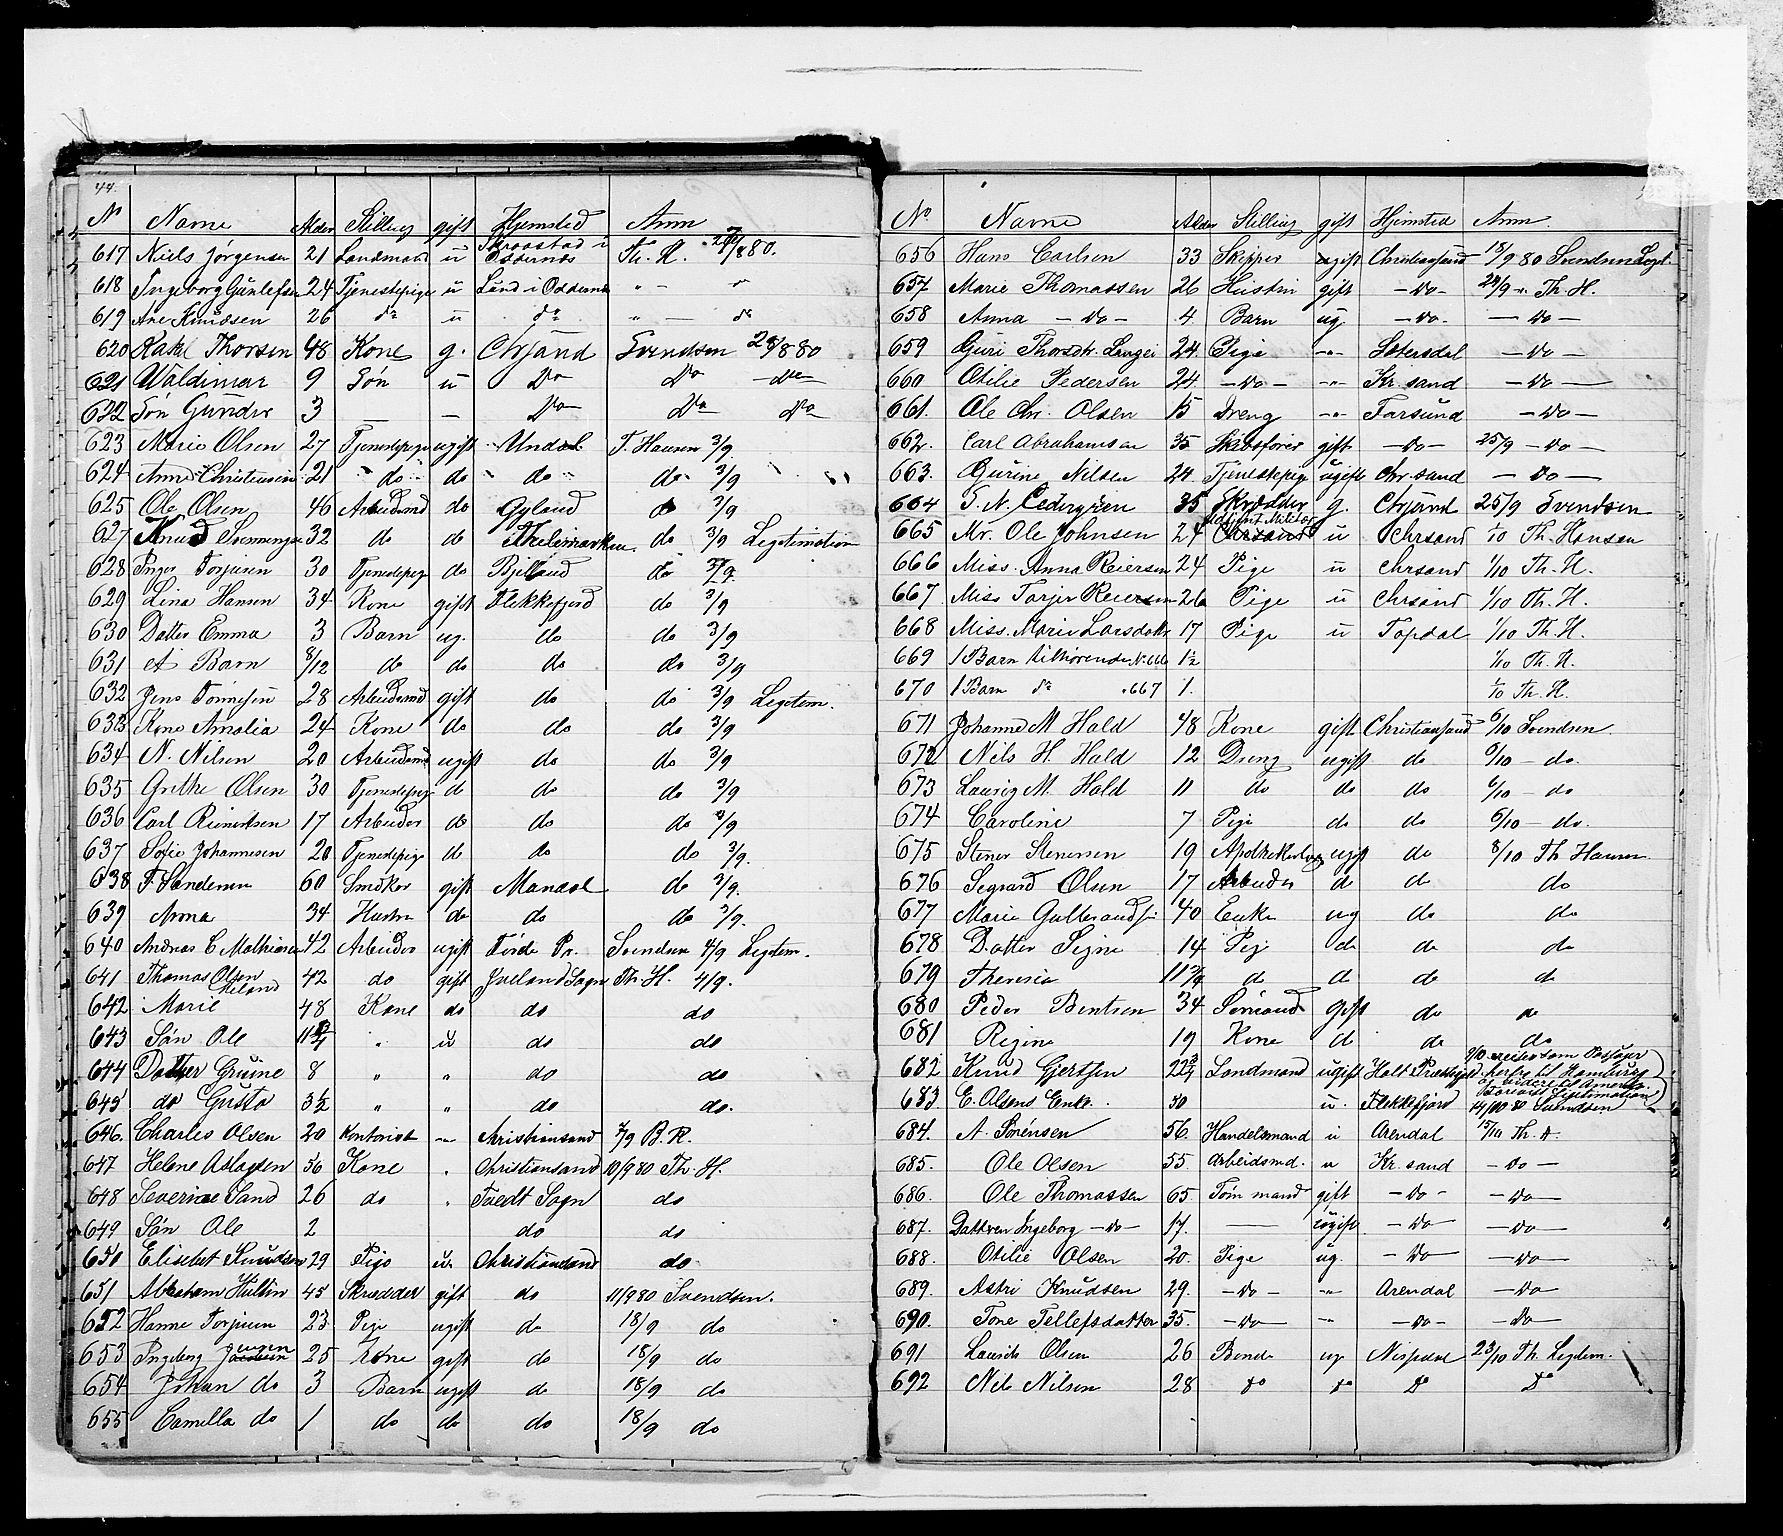 44.
No Navne Alder Stilling gift Hjemsted Anm
617 Niels Jørgensen 21 Landmand u Skraastad i Oddernes Th. R. 27/8 80.
618 Ingeborg Gunlefsen 24 Tjenestepige u Lund i Oddernes " - "
619 Ane Knudsen 26 do u do " - do
620 Rakel Thorsen 48 Kone g. Chrsand Svendsen 28/8 80
621 Waldimar 9 Søn u Do Do Do
622 Søn Gunder 3 — — Do Do Do
623 Marie Olsen 27 Tjenestepige ugift Undal T. Hansen 3/9
624 Anne Christensen 21 do do do do 3/9
625 Ole Olsen 46 Arbeidsmd do Gyland do 3/9
627 Knud Svenningsen 32 do do Thelemarken do 3/9 Legitimation
628 Inger Torjusen 30 Tjenestepige do Bjelland do 3/9
629 Lina Hansen 34 Kone gift Flekkefjord do 3/9
630 Datter Emma 3 Barn ug. do do 3/9
631 et Barn 8/12 do do do do 3/9
632 Jens Tønnesen 28 Arbeidsmd gift do do 3/9 Legitem.
633 Kone Amalia 24 Kone do do do 3/9
634 N. Nilsen 20 Arbeidsmd ugift do do 3/9
635 Grethe Olsen 30 Tjenestepige do do do 3/9
636 Carl Reinertsen 17 Arbeider do do do 3/9
637 Sofie Johannesen 20 Tjenestepige do do do 3/9.
638 T. Sandersen 60 Snedker gift Mandal do 3/9.
639 Anna 34 Hustru do do do 3/9.
640 Andreas C Mathiasen 42 Arbeider ugift Førde Pr. Svendsen 4/9 Legitem.
641 Thomas Olsen Meland 42 do gift Iveland Sogn Th. H. 4/9.
642 Marie 48 Kone do do do
643 Søn Ole 11 " u do do
644 Datter Gurine 8 " " do do
645 do Gusta 3½ " " do do.
646. Charles Olsen 20 Kontorist — Christiansand 7/9 B. R.
647 Helene Aslagsen 56 Kone . Christiansand 10/9 80 Th. H.
648 Severine Sand 26 do . Tvedt Sogn do
649 Søn Ole 2 do do
650 Elisebet Knudsen 29 Pige u. Christiansand do
651 Abraham Hultin 45 Skrædder gift do 11/9 80 Svendsen.
652 Hanne Torjusen 23 Pige ugift do 18/9 do
653 Ingeborg Jensen 25 Kone gift do 18/9 do
654 Johan do 3 Barn ugift do 18/9 do
655 Camilla do 1 do do do 18/9 do
No Navne Alder Stilling gift Hjemsted Anm.
656 Hans Carlsen 33 Skipper ugift Christiansand 18/9 80 Svendsen Legt.
657 Marie Thomassen 26 Hustru gift —do— 24/9 " Th. H.
658 Anna —do— 4. Barn ug. —do— —do—
659 Guri Thorsdtr. Langei 24. Pige —"— Sætersdal —do—
660 Otilie Pedersen 24. —do— —"— Kr. sand —do—
661. Ole Chr. Olsen 15 Dreng —"— Farsund —do—
662. Carl Abrahamsen 35 Skibsfører gift —do— 25/9 —do—
663. Gurine Nilsen 24. Tjenestepige ugift Chr. sand —do—
664 T. N. Cedergren 35 Skrædder g. Chrsand 25/9 Svendsen
665 Mr. Ole Johnsen 24 u Chrsand 1/10 Th. Hansen
666 Miss. Anna Reiersen 24 Pige u Chrsand 1/10 Th. H.
667. Miss Torjer Reiersen 26 Pige u Chrsand 1/10 Th. H.
668 Miss. Marie Larsdatter 17 Pige u Topdal 1/10 Th. H.
669 1 Barn tilhørende No. 666 1½ 1/10 Th. H.
670 1 Barn do . 667 1. 1/10 Th. H.
671 Johanne M Hald 48 Kone gift Christiansand 6/10 Svendsen.
672 Nils H. Hald 12 Dreng ugift do 6/10 — do.
673 Lauriz M. Hald 11 do do do 6/10 — do
674 Caroline 7 Pige do do 6/10 — do.
675 Stener Stenersen 19 ugft do 8/10 Th Hansen
676 Segvard Olsen 17 Arbeider do do do
677 Marie Gulbrands 40 Enke ug do do
678 Datter Signe 14 Pig do do do
679 Theresia 11 do do do do
680 Peder Bentsen 34 Sømand gift do do
681 Regine 19 Kone d do do
682 Knud Gjertsen 22 Landmand ugift Holt Præstegjeld 9/10 reiser som Passager herfra til Hamburg og videre til Amerika.
683 E. Olsens Enke. 50 u. Flekkefjord 14/10 80 Svendsen
684. A. Sørensen 56. Handelsmand u Arendal 15/10 Th. H.
685. Ole Olsen 55 Arbeidsmd. u Kr. sand —do—
686. Ole Thomassen 65. Tømmand gift —do— —do—
687. Dattren Ingeborg —do— 17. — ugift —do— —do—
688. Otilie Olsen 20. Pige ug. —do— —do—
689. Astri Knudsen 29. —do— —"— Arendal —do—
690. Tone Tellefsdatter 35. —do— —"— —do— —do—
691 Laurits Olsen 26 Bonde ug Nisedal 23/10 Th. Legitem.
692 Nels Nilsen 28 do do do do